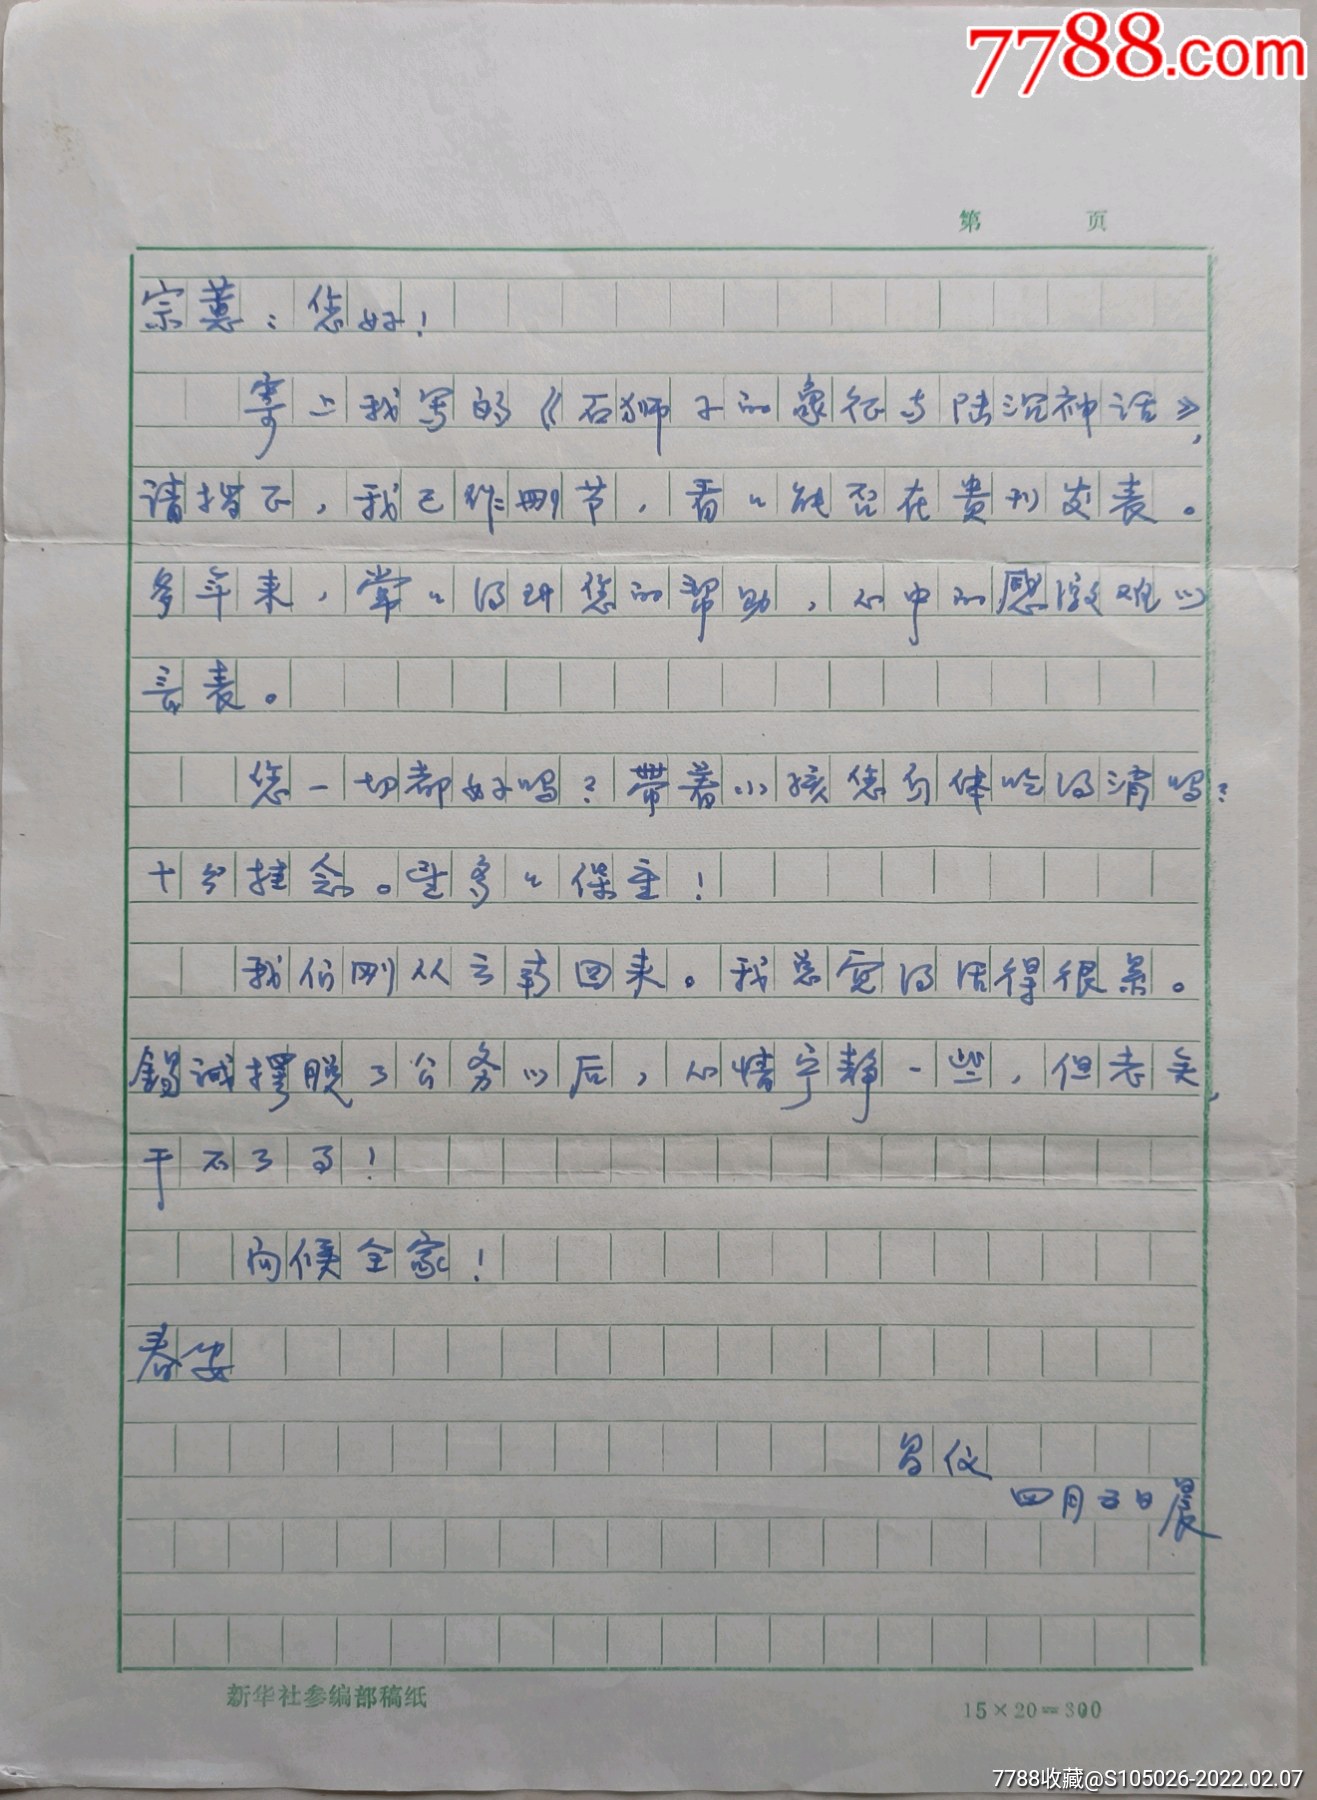 7788.com
第 页
宗蕙：您好！
寄上我写的《石狮子的象征与陆沉神话》，
请指正，我已作删节，看〻能否在贵刊发表。
多年来，常〻得到您的帮助，心中的感激难以
言表。
您一切都好吗？带着小孩您身体吃得消吗？
十分挂念。望多〻保重！
我们刚从云南回来。我总觉得活得很累。
锡诚摆脱了公务以后，心情宁静一些，但老矣，
干不了了！
问候全家！
春安
昌仪
四月五日晨
新华社参编部稿纸
15×20=300
7788收藏@S105026-2022.02.07